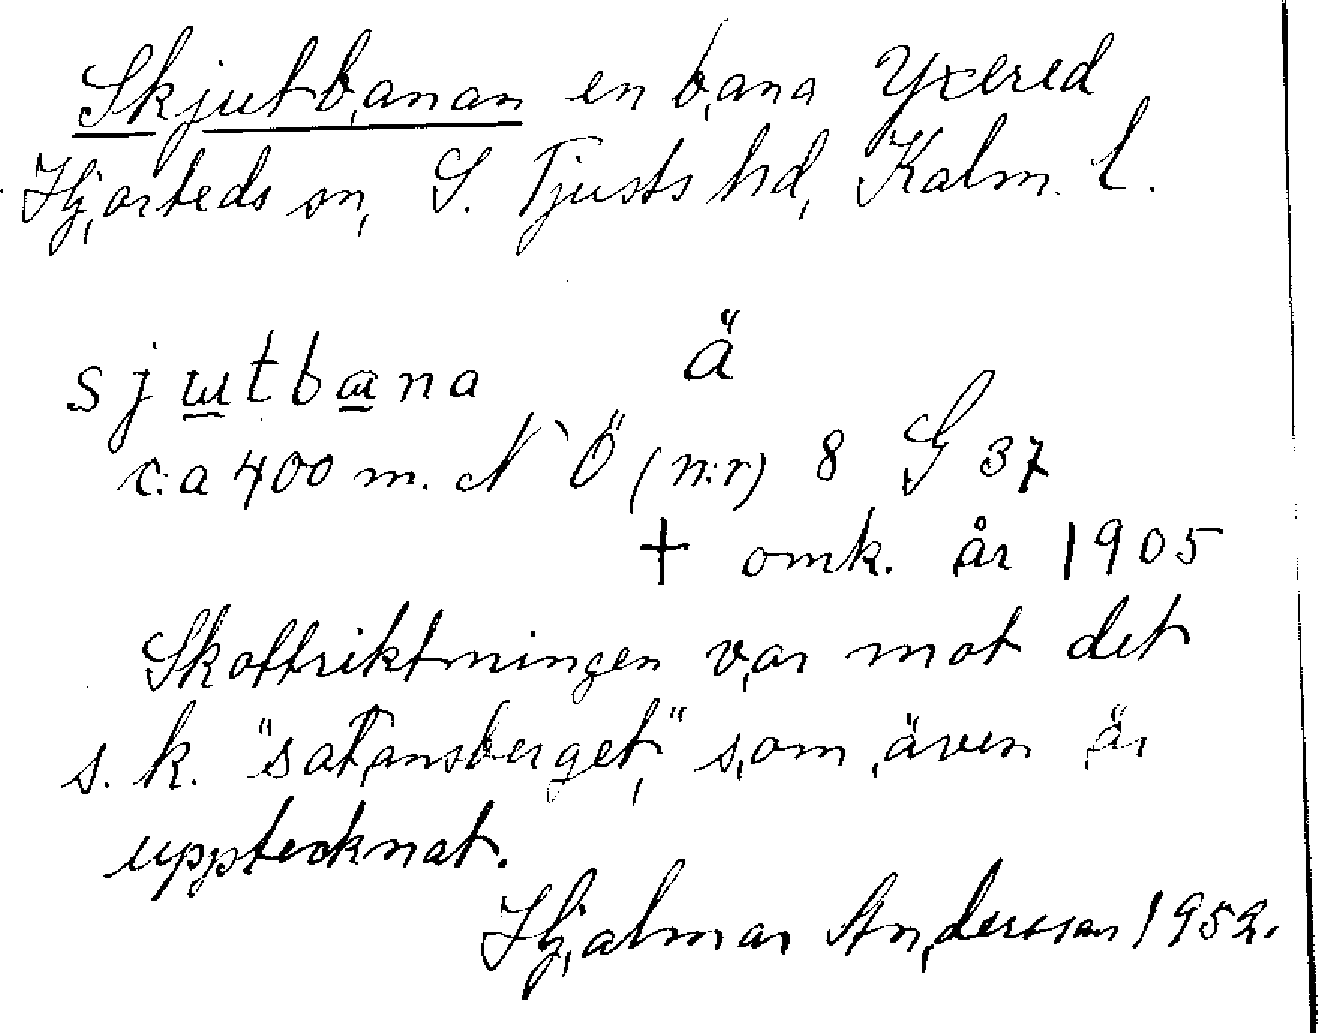 Skjutbanan en bana Yxered
Hjorteds sn, S. Tjusts hd, Kalm. l.
sjutbana ä
c:a 400 m. N Ö (n:r) 8 G 37
+ omk. år 1905
Skottriktningen var mot det
s.k. "satansberget," som även är
upptecknat.
Hjalmar Andersson 1952.